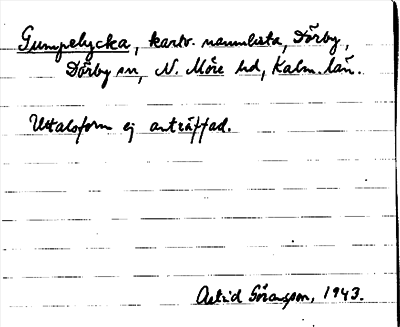 Gumpelycka, kartv. namnlista, Dörby,
Dörby sn, N. Möre hd, Kalm. län.
Uttalsform ej anträffad.
Astrid Göransson, 1943.